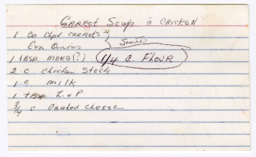 CARROT SOUP & CHICKEN
1 Cu Chpd CARROTS
Onions
1 TBSP 1/4 C FLOUR
2 C Chicken Stock
1 C milk
1 TBSP L & P
3/4 C Grated Cheese